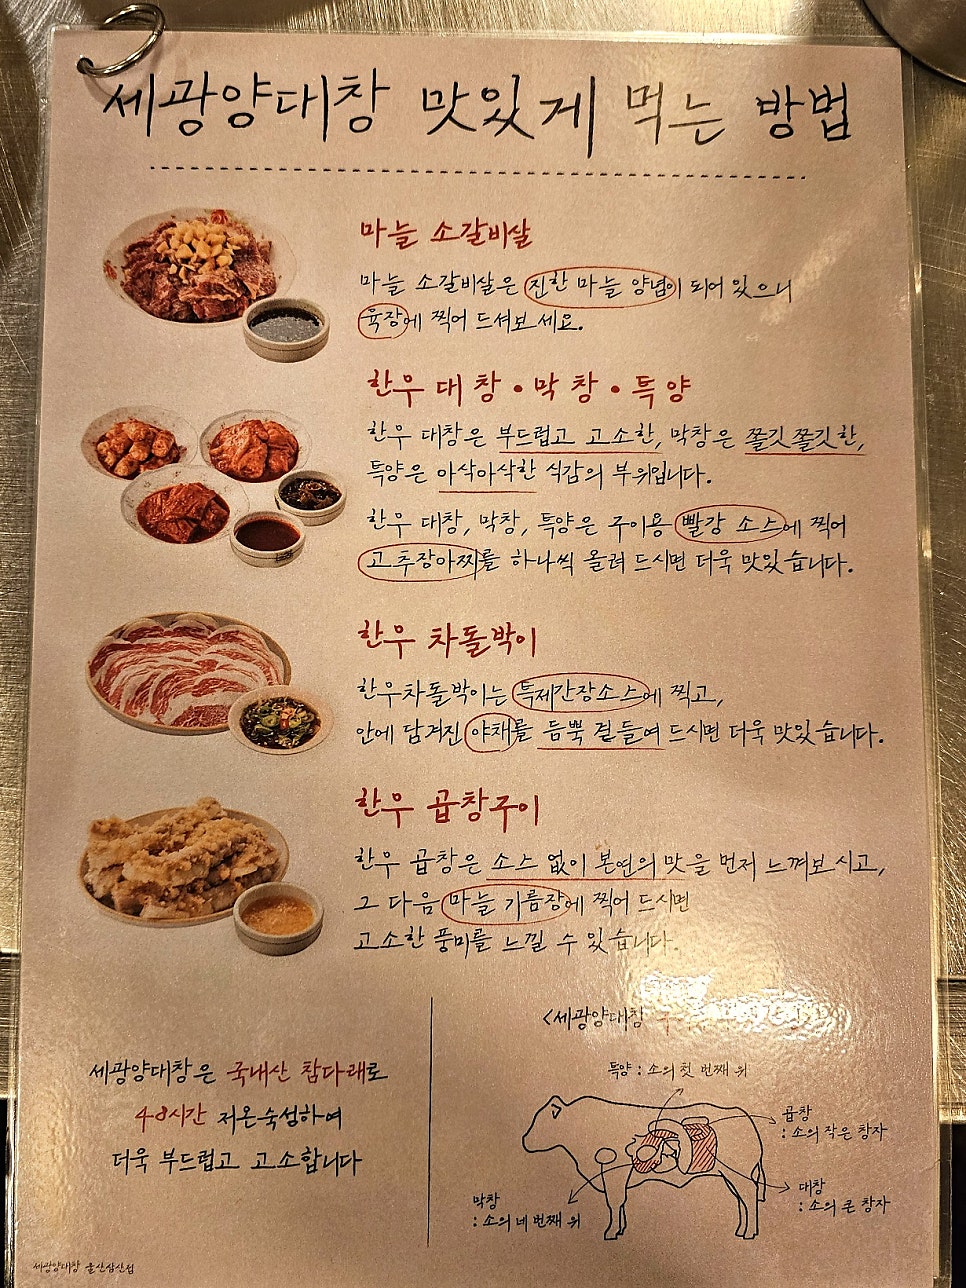 세광양대창 맛있게 먹는 방법
마늘 소갈비살
마늘 소갈비살은 진한 마늘 양념이 되어 있으니
육장에 찍어 드셔보세요.
한우 대창·막창·특양
한우 대창은 부드럽고 고소한, 막창은 쫄깃쫄깃한,
특양은 아삭아삭한 식감의 부위입니다.
한우 대창, 막창, 특양은 구이용 빨강 소스에 찍어
고추장아찌를 하나씩 올려 드시면 더욱 맛있습니다.
한우 차돌박이
한우차돌박이는 특제간장소스에 찍고,
안에 담겨진 야채를 듬뿍 곁들여 드시면 더욱 맛있습니다.
한우 곱창구이
한우 곱창은 소스 없이 본연의 맛을 먼저 느껴보시고,
그 다음 마늘 기름장에 찍어 드시면
고소한 풍미를 느낄 수 있습니다.
세광양대창은 국내산 참다래로
48시간 저온숙성하여
더욱 부드럽고 고소합니다
<세광양대창
특양 : 소의 첫 번째 위
곱창
: 소의 작은 창자
대창
: 소의 큰 창자
막창
: 소의 네 번째 위
세광양대창 울산삼산점